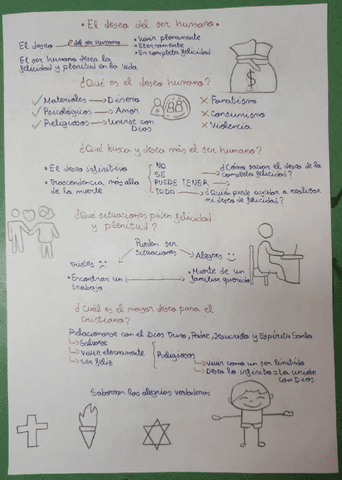 • El deseo del ser humano •
El deseo del ser humano
• Vivir plenamente
• Eternamente
• En completa felicidad
El ser humano desea la
felicidad y plenitud en la vida
$
¿Qué es el deseo humano?
✓ Materiales → Dinero
✓ Psicológicos → Amor
✓ Religiosos → Unirse con
Dios
✗ Fanatismo
✗ Consumismo
✗ Violencia
¿Qué busca y desea más el ser humano?
• El deseo infinitivo
• Trascendencia, más allá
de la muerte
NO
SE
PUEDE TENER
TODO
¿Cómo saciar el deseo de la
completa felicidad?
→ ¿Quién puede ayudar a realizar
mi deseo de felicidad?
¿Qué situaciones piden felicidad
y plenitud?
Pueden ser
situaciones
Tristes
Alegres
• Encontrar un
trabajo
• Muerte de un
familiar querido
¿Cuál es el mayor deseo para el
cristiano?
Relacionarse con el Dios Trino, Padre, Jesucristo y Espíritu Santo
→ Salvarse
→ Vivir eternamente
→ Ser feliz
Religiosos
→ Vivir como un ser limitado
→ Desea lo infinito = La unión
con Dios
Saborean las alegrías verdaderas